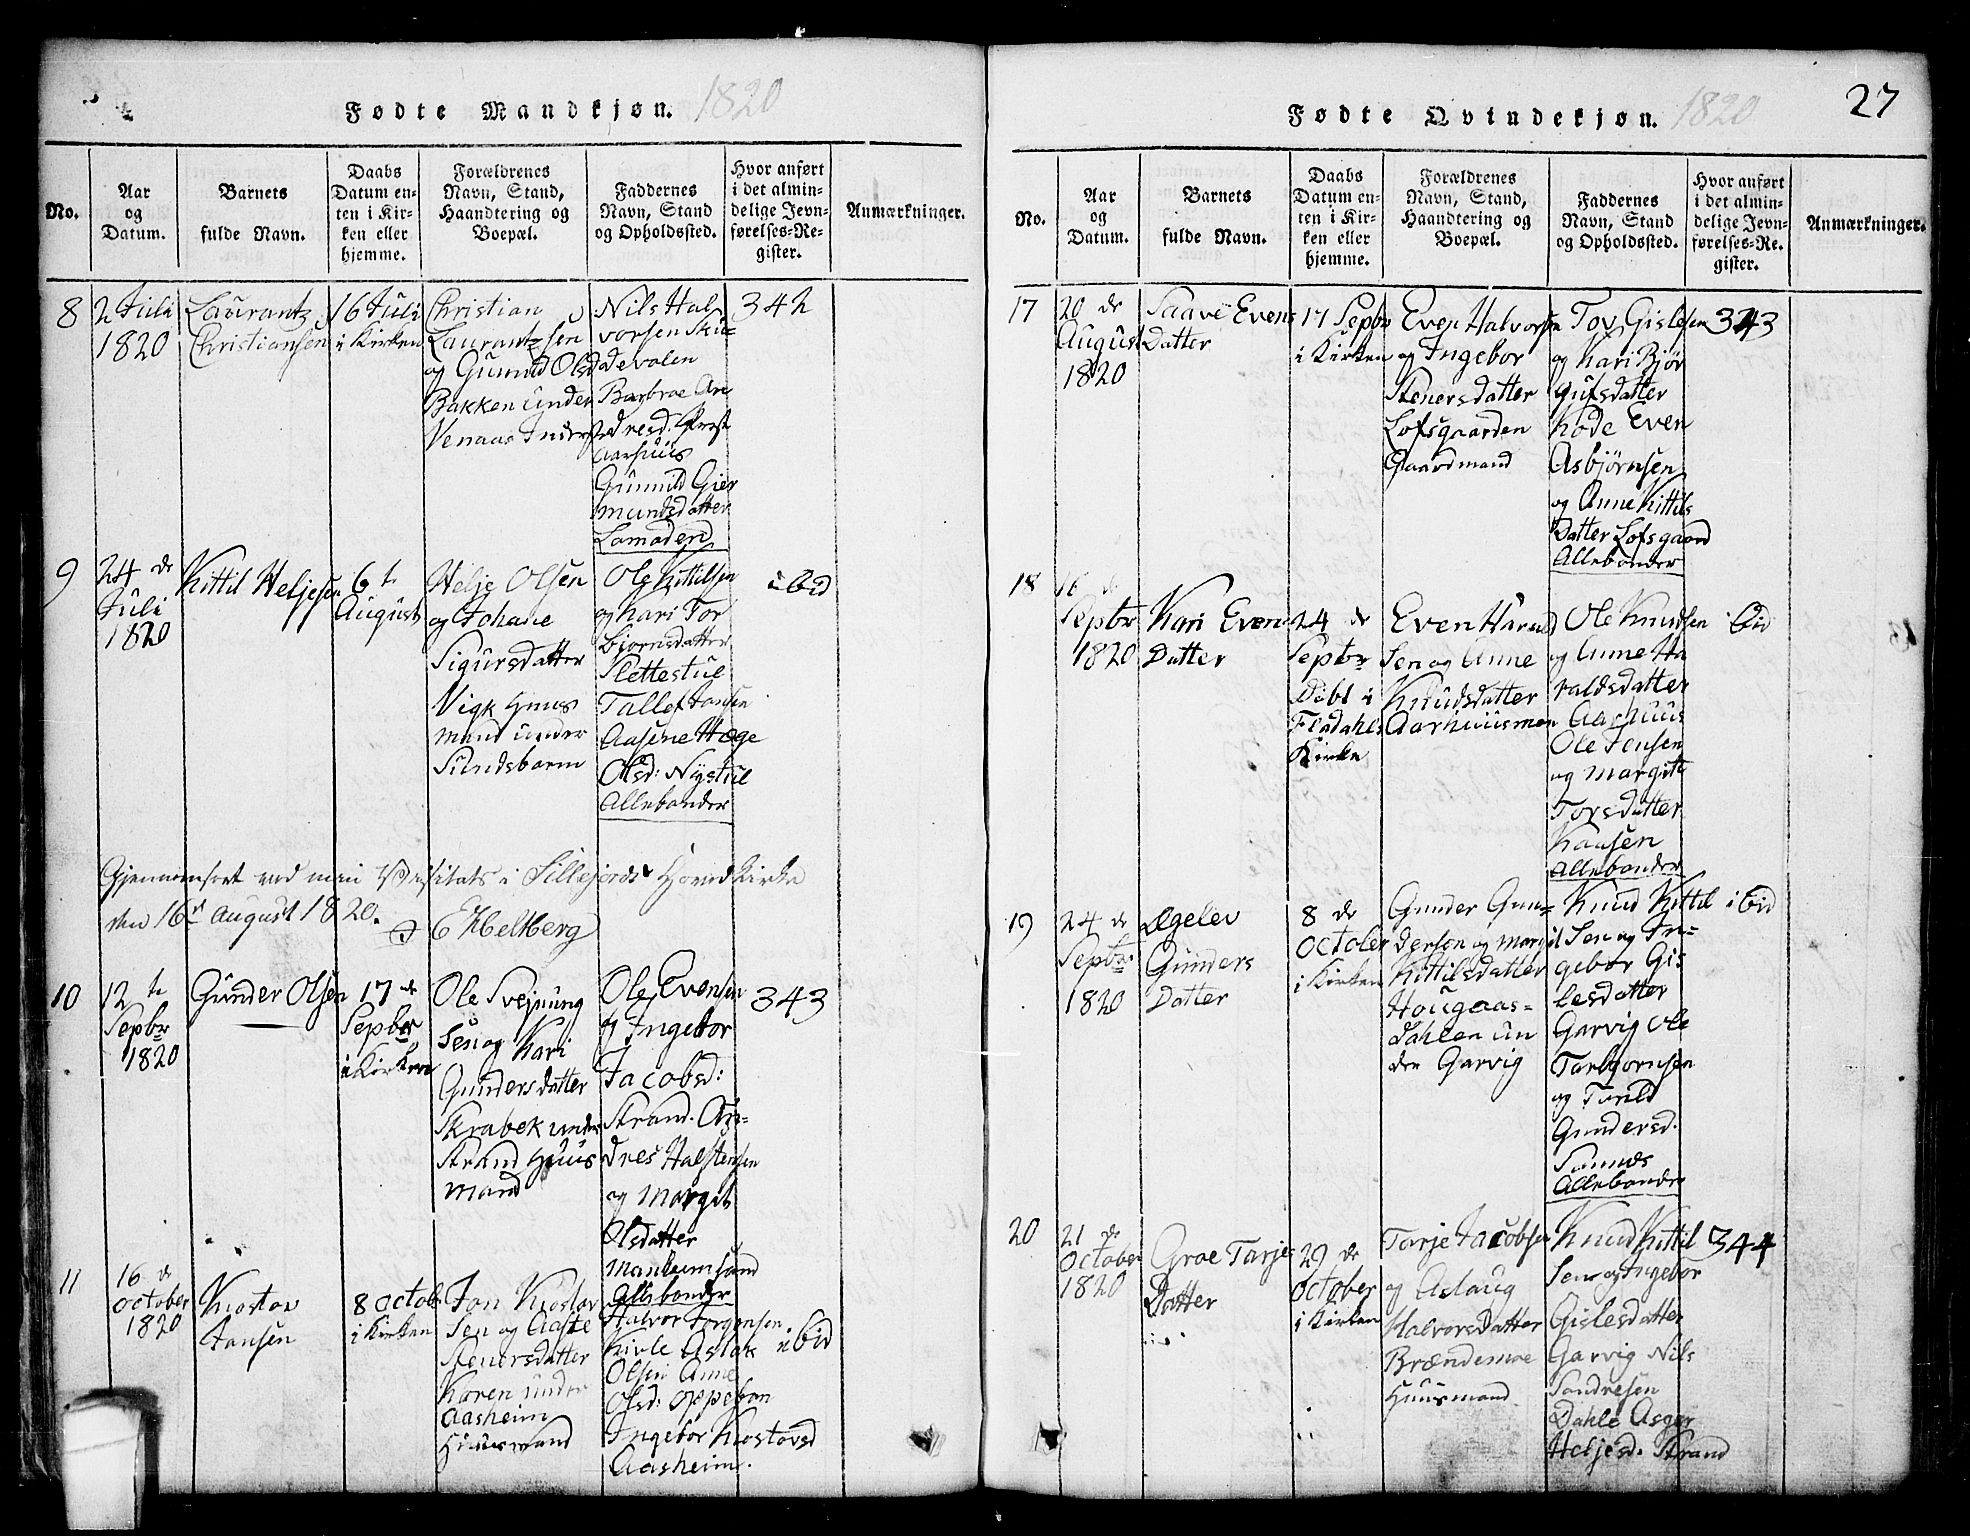 Fødte Mandkjøn. 1820
No.
Aar
og
Datum.
Barnets
fulde Navn.
Daabs
Datum en-
ten i Kir-
ken eller
hjemme.
Forældrenes
Navn, Stand,
Haandtering og
Boepæl.
Faddernes
Navn, Stand
og Opholdssted.
Hvor anført
i det almin-
delige Jevn-
førelses-Re-
gister.
Anmærkninger.
8
2 Juli
1820
Laurantz
Christiansen
16 Juli
i Kirken
Christian
Laurantzsen
og Gunnild Olsd
Bakken under
Venaas
Nils Hal
vorsen Sku-
devolen
Barbroe An
dresd. Præst
aarhuus
Gunnild Gier
mundsdatter
Lamoden
342
9
24 de
Juli
1820
Kittil Heljesen
6 te
August
Helje Olsen
og Johane
Sigursdatter
Vigk Huus
mand under
Sundsbarm
Ole Kittilsen
og Kari Tor
bjørnsdatter
Slettestul
Tallef Jansen
Aasene Hæge
Olsd: Nystul
Allebønder
ibid
Gjennemseet ved min Visitats i Sillejords Hovedkirke
den 16 August 1820.
10
12 te
Sepbr
1820
Gunder Olsen
17 de
Sepbr
i Kirken
Ole Svejnung
Sen og Kari
Gundersdatter
Skrabek under
Strand Huus
mand
Ole Evensen
og Ingebor
Jacobsd:
Strand. An-
dres Halstensen
og Margit
Olsdatter
Manheimsund
Allebønder
343
11
16 de
October
1820
Knostov
Jansen
8 Octob
i Kirken
Jon Knostov
Sen og Aaste
Stenersdatter
Karen under
Aasheim
Huusmand
Halvor Jorgensen
Kivle Aslak
Olsen Anne
Olsd: Oppebøn
Ingebor Knostovsd
Aasheim.
ibid
Fødte Qvindekjøn. 1820
27
No.
Aar
og
Datum.
Barnets
fulde Navn.
Daabs
Datum en-
ten i Kir-
ken eller
hjemme.
Forældrenes
Navn, Stand,
Haandtering og
Boepæl.
Faddernes
Navn, Stand
og Opholdssted.
Hvor anført
i det almin-
delige Jevn-
førelses-Re-
gister.
Anmærkninger.
17
20 de
August
1820
Saave Evens
Datter
17 Sepbr
i Kirken
Even Halvorsen
og Ingebor
Stenersdatter
Lofsgaarden
Gaardmand
Tov Gislesen
og Kari Bjør
gufsdatter
Kode Even
Asbjørnsen
og Anne Kittils
Datter Lofsgaard
Allebønder
343
18
16 de
Septbr
1820
Kari Evens
Datter
24 de
Septbr
Døbt i
Fladahls
Kirke
Even Harald
Sen og Anne
Knudsdatter
Aarhuusmoen
Ole Knudsen
og Anne Ha
raldsdatter
Aarhuus
Ole Jensen
og Margitt
Torsdatter
Kaasen
Allebønder
ibid
19
24 de
Sepbr
1820
Ægelev
Gunders
Datter
8 de
October
i Kirken
Gunder Gun-
dersen og Margit
Kittilsdatter
Hougaas-
dahlen un
der Garvig
Knud Kittil
Sen og In-
gebor Gis
lesdatter
Garvig Ole
Tarbjornsen
og Torild
Gundersd.
Sannes
Allebønder
ibid
20
21 de
October
1820
Groe Tarjes
Datter
29 de
October
i Kirken
Tarje Jacobsen
og Aslaug
Halvorsdatter
Brændemoe
Huusmand
Knud Kittil
Sen og Ingebor
Gislesdatter
Garvig Nils
Sondresen
Dahle Asger
Heljesd. Strand
344